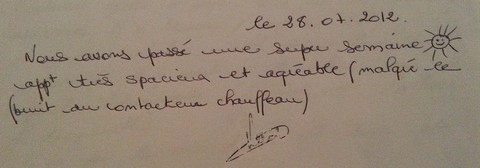 le 28.07.2012.
Nous avons passé une super semaine
appt très spacieux et agréable (malgré le
(bruit du contacteur chauffeau)